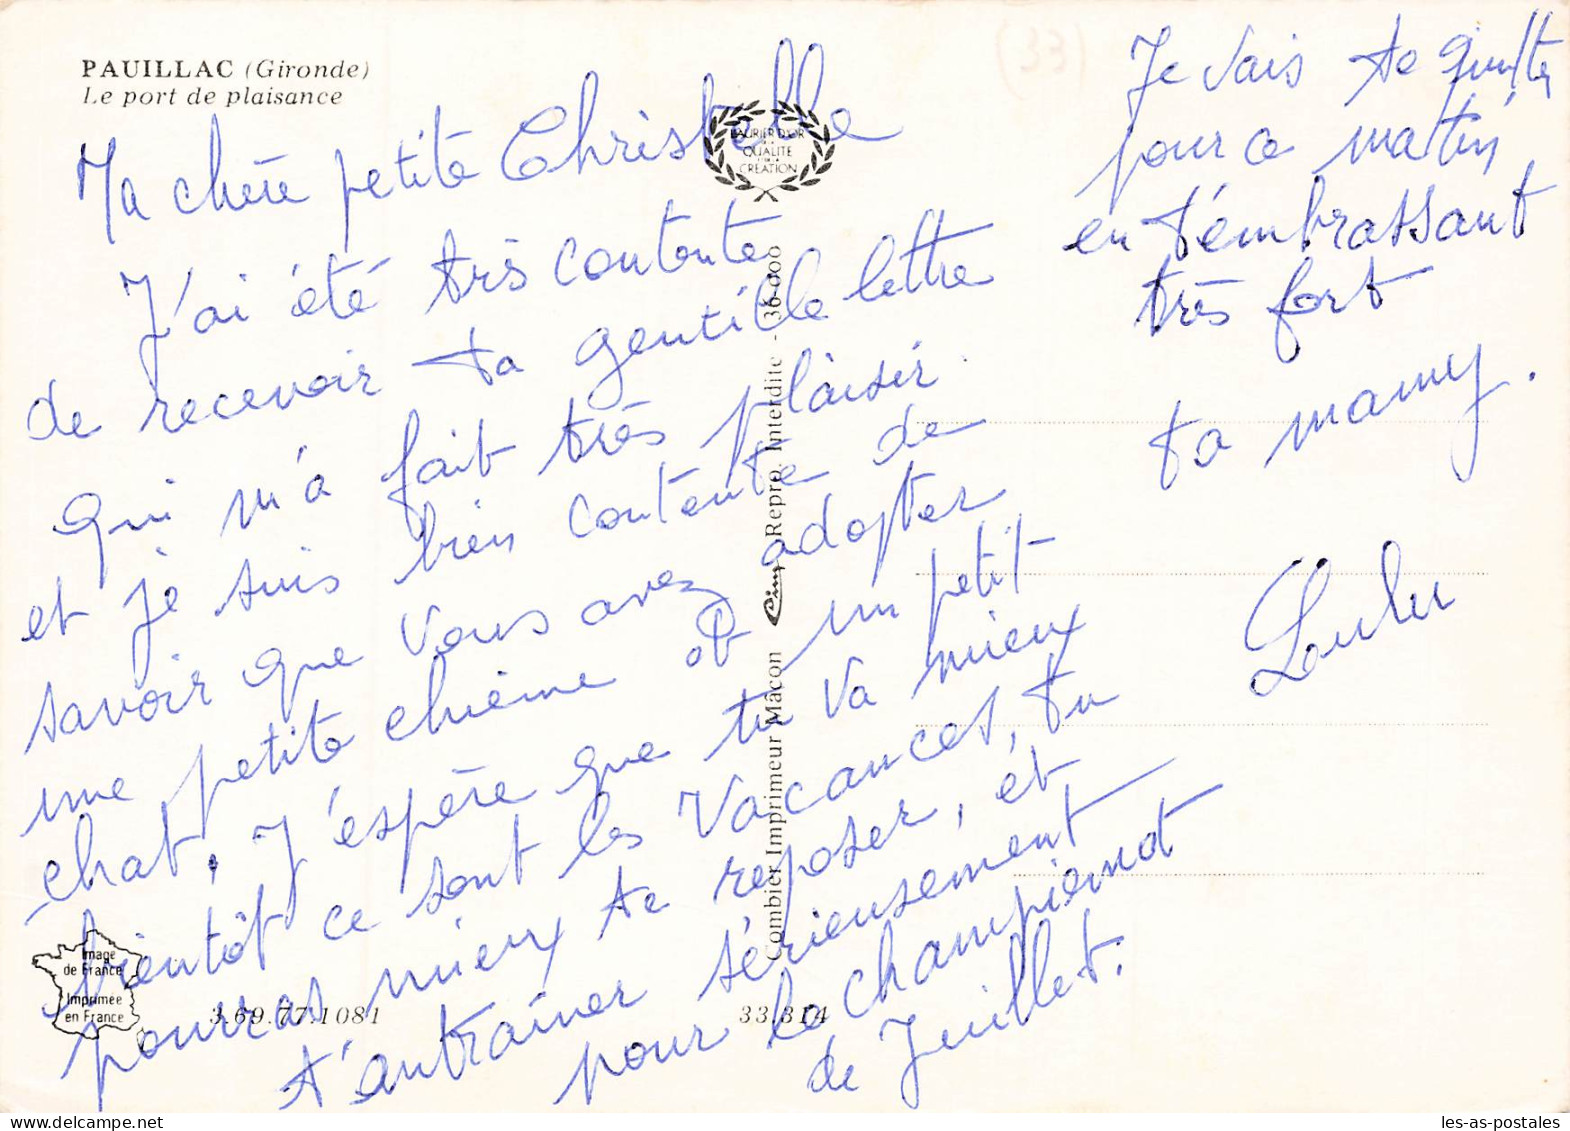 PAUILLAC (Gironde)
Le port de plaisance
LAURIER D'OR
DE LA
QUALITE
CREATION
Ma chère petite Christelle
J'ai été très contente
de recevoir ta gentille lettre
qui m'a fait très plaisir.
et je suis bien contente de
savoir que vous avez adopter
une petite chième et un petit
chat, J'espère que tu va mieux
bientôt ce sont les vacances, tu
pourras mieux te reposer, et
t'antraîner sérieusement
pour le champienat
de Juillet.
Je vais te quitter
pour ce matin,
en t'embrassant
très fort
ta mamy.
Loulou
Combier Imprimeur Mâcon Cim Repro. Interdite - 36 000
Image
de France
Imprimée
en France
3.69.77.1081
33.314
(33)
les-as-postales